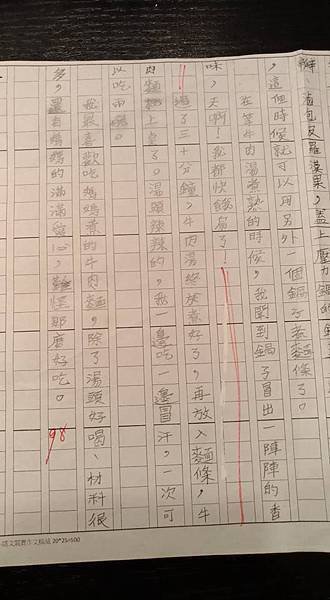 、滷包及羅漢果,蓋上壓力鍋的
,這個時候就可以用另外一個鍋子煮麵條了。
在等牛肉湯煮熟的時候,我聞到鍋子冒出一陣陣的香
味,天啊!我都快餓扁了!
過了三十分鐘,牛肉湯終於煮好了,再放入麵條,牛
肉麵上桌了。湯頭辣辣的,我一邊吃一邊冒汗,一次可
以吃兩碗。
我最喜歡吃媽媽煮的牛肉麵,除了湯頭好喝、材料很
多,還有媽媽的滿滿愛心,難怪那麼好吃。
98
語文競賽作文稿紙 20*25=500